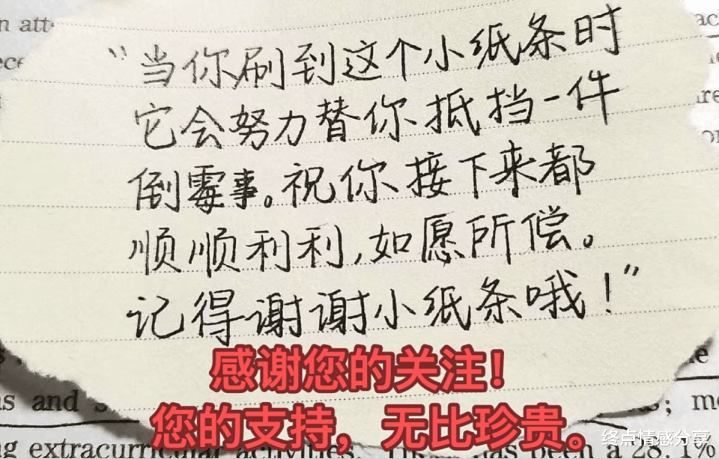 n att
“当你刷到这个小纸条时
它会努力替你抵挡一件
倒霉事。祝你接下来都
顺顺利利,如愿所偿。
记得谢谢小纸条哦!”
感谢您的关注!
s and
您的支持,无比珍贵。
g extracurricular
been a 28.1%
终点情感分享